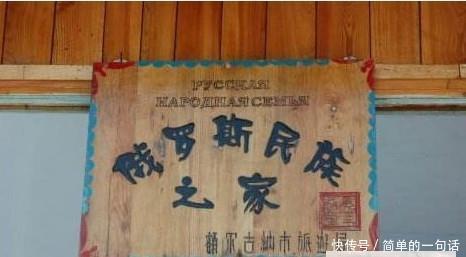 РУССКАЯ
НАРОДНАЯ СЕМЬЯ
俄罗斯民族
之家
额尔古纳市旅游局
快传号／简单的一句话